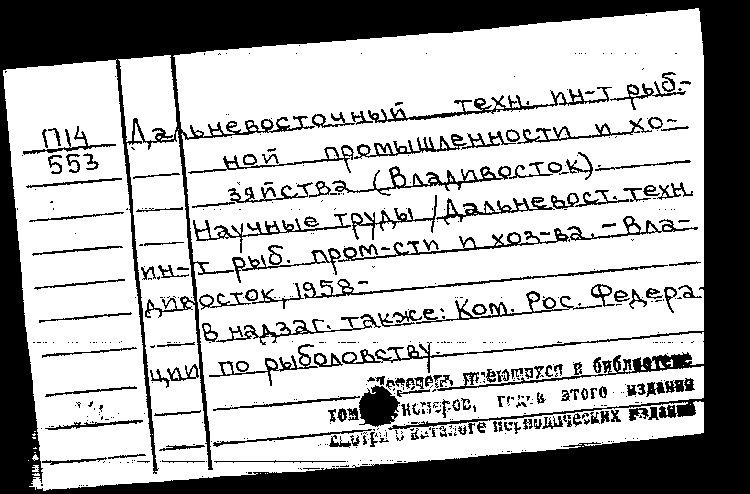 П14
553
Дальневосточный техн. ин-т рыб-
ной промышленности и хо-
зяйства (Владивосток).
Научные труды /Дальневост. техн.
ин-т рыб. пром-сти и хоз-ва. – Вла-
дивосток, 1958-
В надзаг. также: Ком. Рос. Федера-
ции по рыболовству.
Перечень имеющихся в библиотеке
томов, номеров, годов этого издания
смотри в каталоге периодических изданий